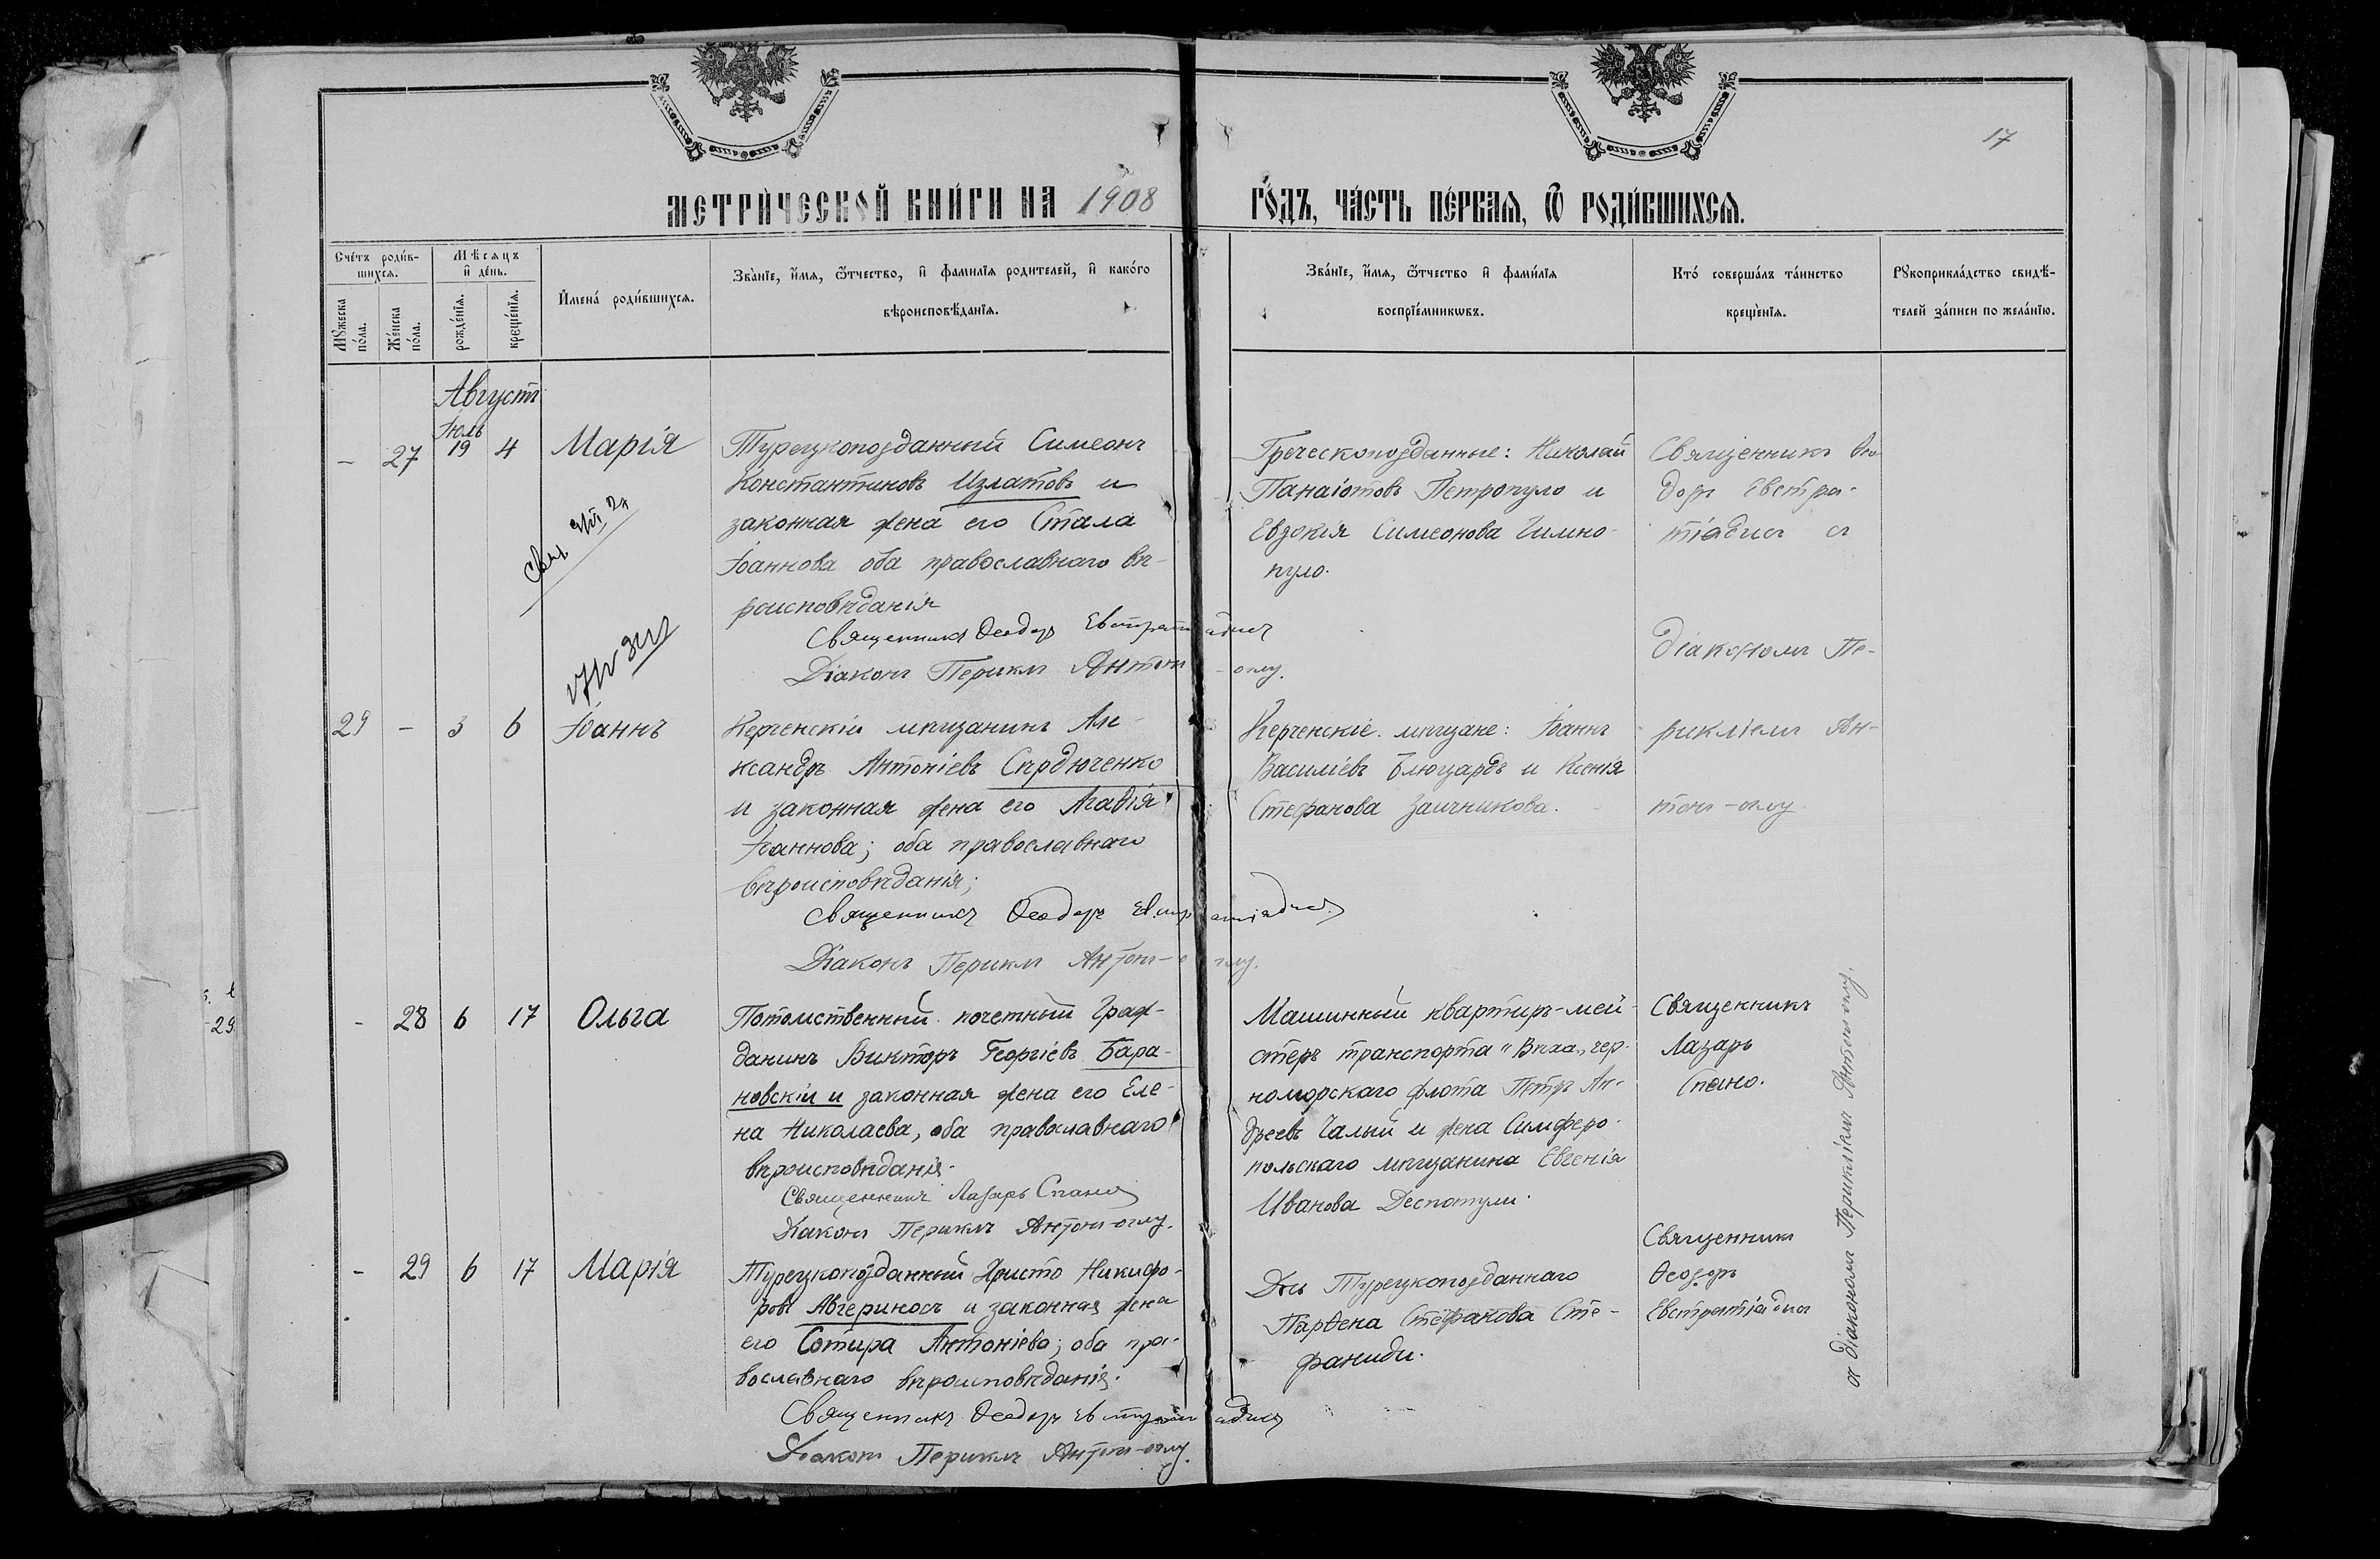 17
МЕТРИ́ЧЕСКОЙ КНИ́ГИ НА 1908 ГО́ДЪ, ЧА́СТЬ ПЕ́РВАѦ, Ѿ РОДИ́ВШИХСѦ.
Сче́тъ роди́в-
шихсѧ.
Мꙋ́жеска по́ла.
Же́нска по́ла.
Мѣ́сѧцъ
и҆ де́нь.
рожде́нїѧ.
креще́нїѧ.
И҆мена̀ роди́вшихсѧ.
Зва́нїе, и҆́мѧ, ѻ҆́тчество, и҆ фами́лїѧ роди́телей, и҆ како́гѡ
вѣроисповѣ́данїѧ.
Зва́нїе, и҆́мѧ, ѻ҆́тчество и҆ фами́лїѧ
воспрїе́мникѡвъ.
Кто̀ соверша́лъ та́инство
креще́нїѧ.
Рꙋкоприкла́дство свидѣ́-
телей за́писи по жела́нїю.
Августъ
Іюль
— 27 19 4 Марія
Турецкоподданный Симеонъ
Константиновъ Излатовъ и
законная жена его Стала
Іоаннова оба православнаго вѣ-
роисповѣданія
Священникъ Ѳеодоръ Евстратіадисъ
Діаконъ Периклъ Антонъ-оглу.
Греческоподданные: Николай
Панаіотовъ Петропуло и
Евдокія Симеонова Чимно-
пуло.
Священникъ Ѳео-
доръ Евстра-
тіадисъ съ
діакономъ Пе-
рикліемъ Ан-
тонъ-оглу
29 — 3 6 Іоаннъ
Керченскій мѣщанинъ Але-
ксандръ Антоніевъ Сердюченко
и законная жена его Агаѳія
Іоаннова; оба православнаго
вѣроисповѣданія;
Священникъ Ѳеодоръ Евстратіадисъ
Діаконъ Периклъ Антонъ-оглу.
Керченскіе мѣщане: Іоаннъ
Василіевъ Блюцардъ и Ксенія
Стефанова Заичникова.
- 28 6 17 Ольга
Потомственный почетный Граж-
данинъ Викторъ Георгіевъ Бара-
новскій и законная жена его Еле-
на Николаева, оба православнаго
вѣроисповѣданія.
Священникъ Лазарь Спано
Діаконъ Периклъ Антонъ-оглу.
Машинный квартиръ-мей-
стеръ транспорта „Вѣха„ чер-
номорскаго флота Петръ Ан-
дреевъ Чалый и жена Симферо-
польскаго мѣщанина Евгенія
Иванова Деспотули.
Священникъ
Лазарь
Спано.
- 29 6 17 Марія
Турецкоподданный Христо Никифо-
ровъ Авгериносъ и законная жена
его Сотира Антоніева; оба пра-
вославнаго вѣроисповѣданія.
Священникъ Ѳеодоръ Евстратіадисъ
Діаконъ Периклъ Антонъ-оглу.
Турецкоподданнаго
Парѳена Стефанова Сте-
фаниди.
Священникъ
Ѳеодоръ
Евстратіадисъ
съ діакономъ Перикліемъ Антонъ-оглу.
29